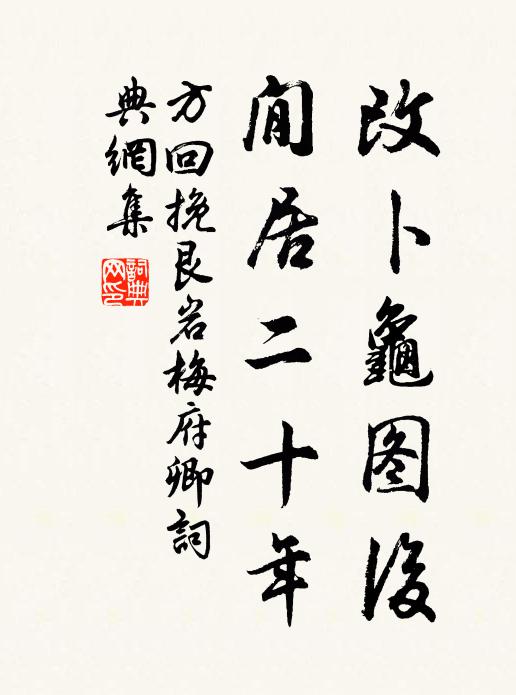 改卜龜图後
閒居二十年
方回挽艮岩梅府卿詞
典網集
詞典
网印